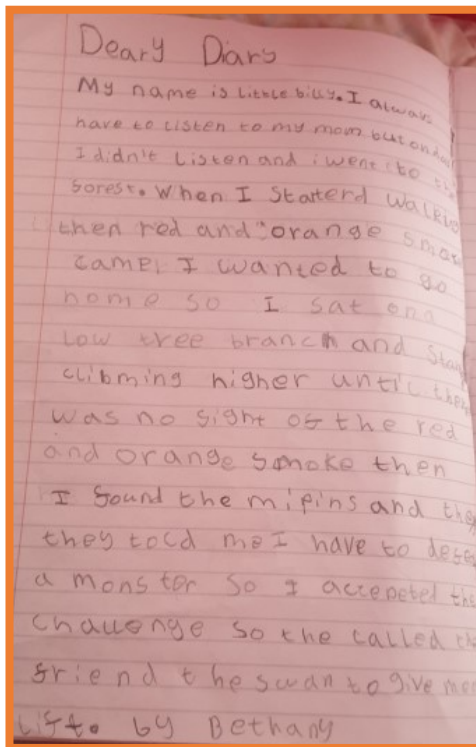 Deary Diary
My name is Little billy. I always
have to listen to my mom but
I didn't listen and i went to
sorest. When I staterd walkin
then red and orange smo
came, I wanted to go
home so I sat on a
low tree branch and sta
clibming higher until the
was no sight of the red
and orange smoke then
I found the mipins and the
they told me I have to defe
a monster so I accepeted the
challenge so the called the
friend the swan to give me
lift. by Bethany